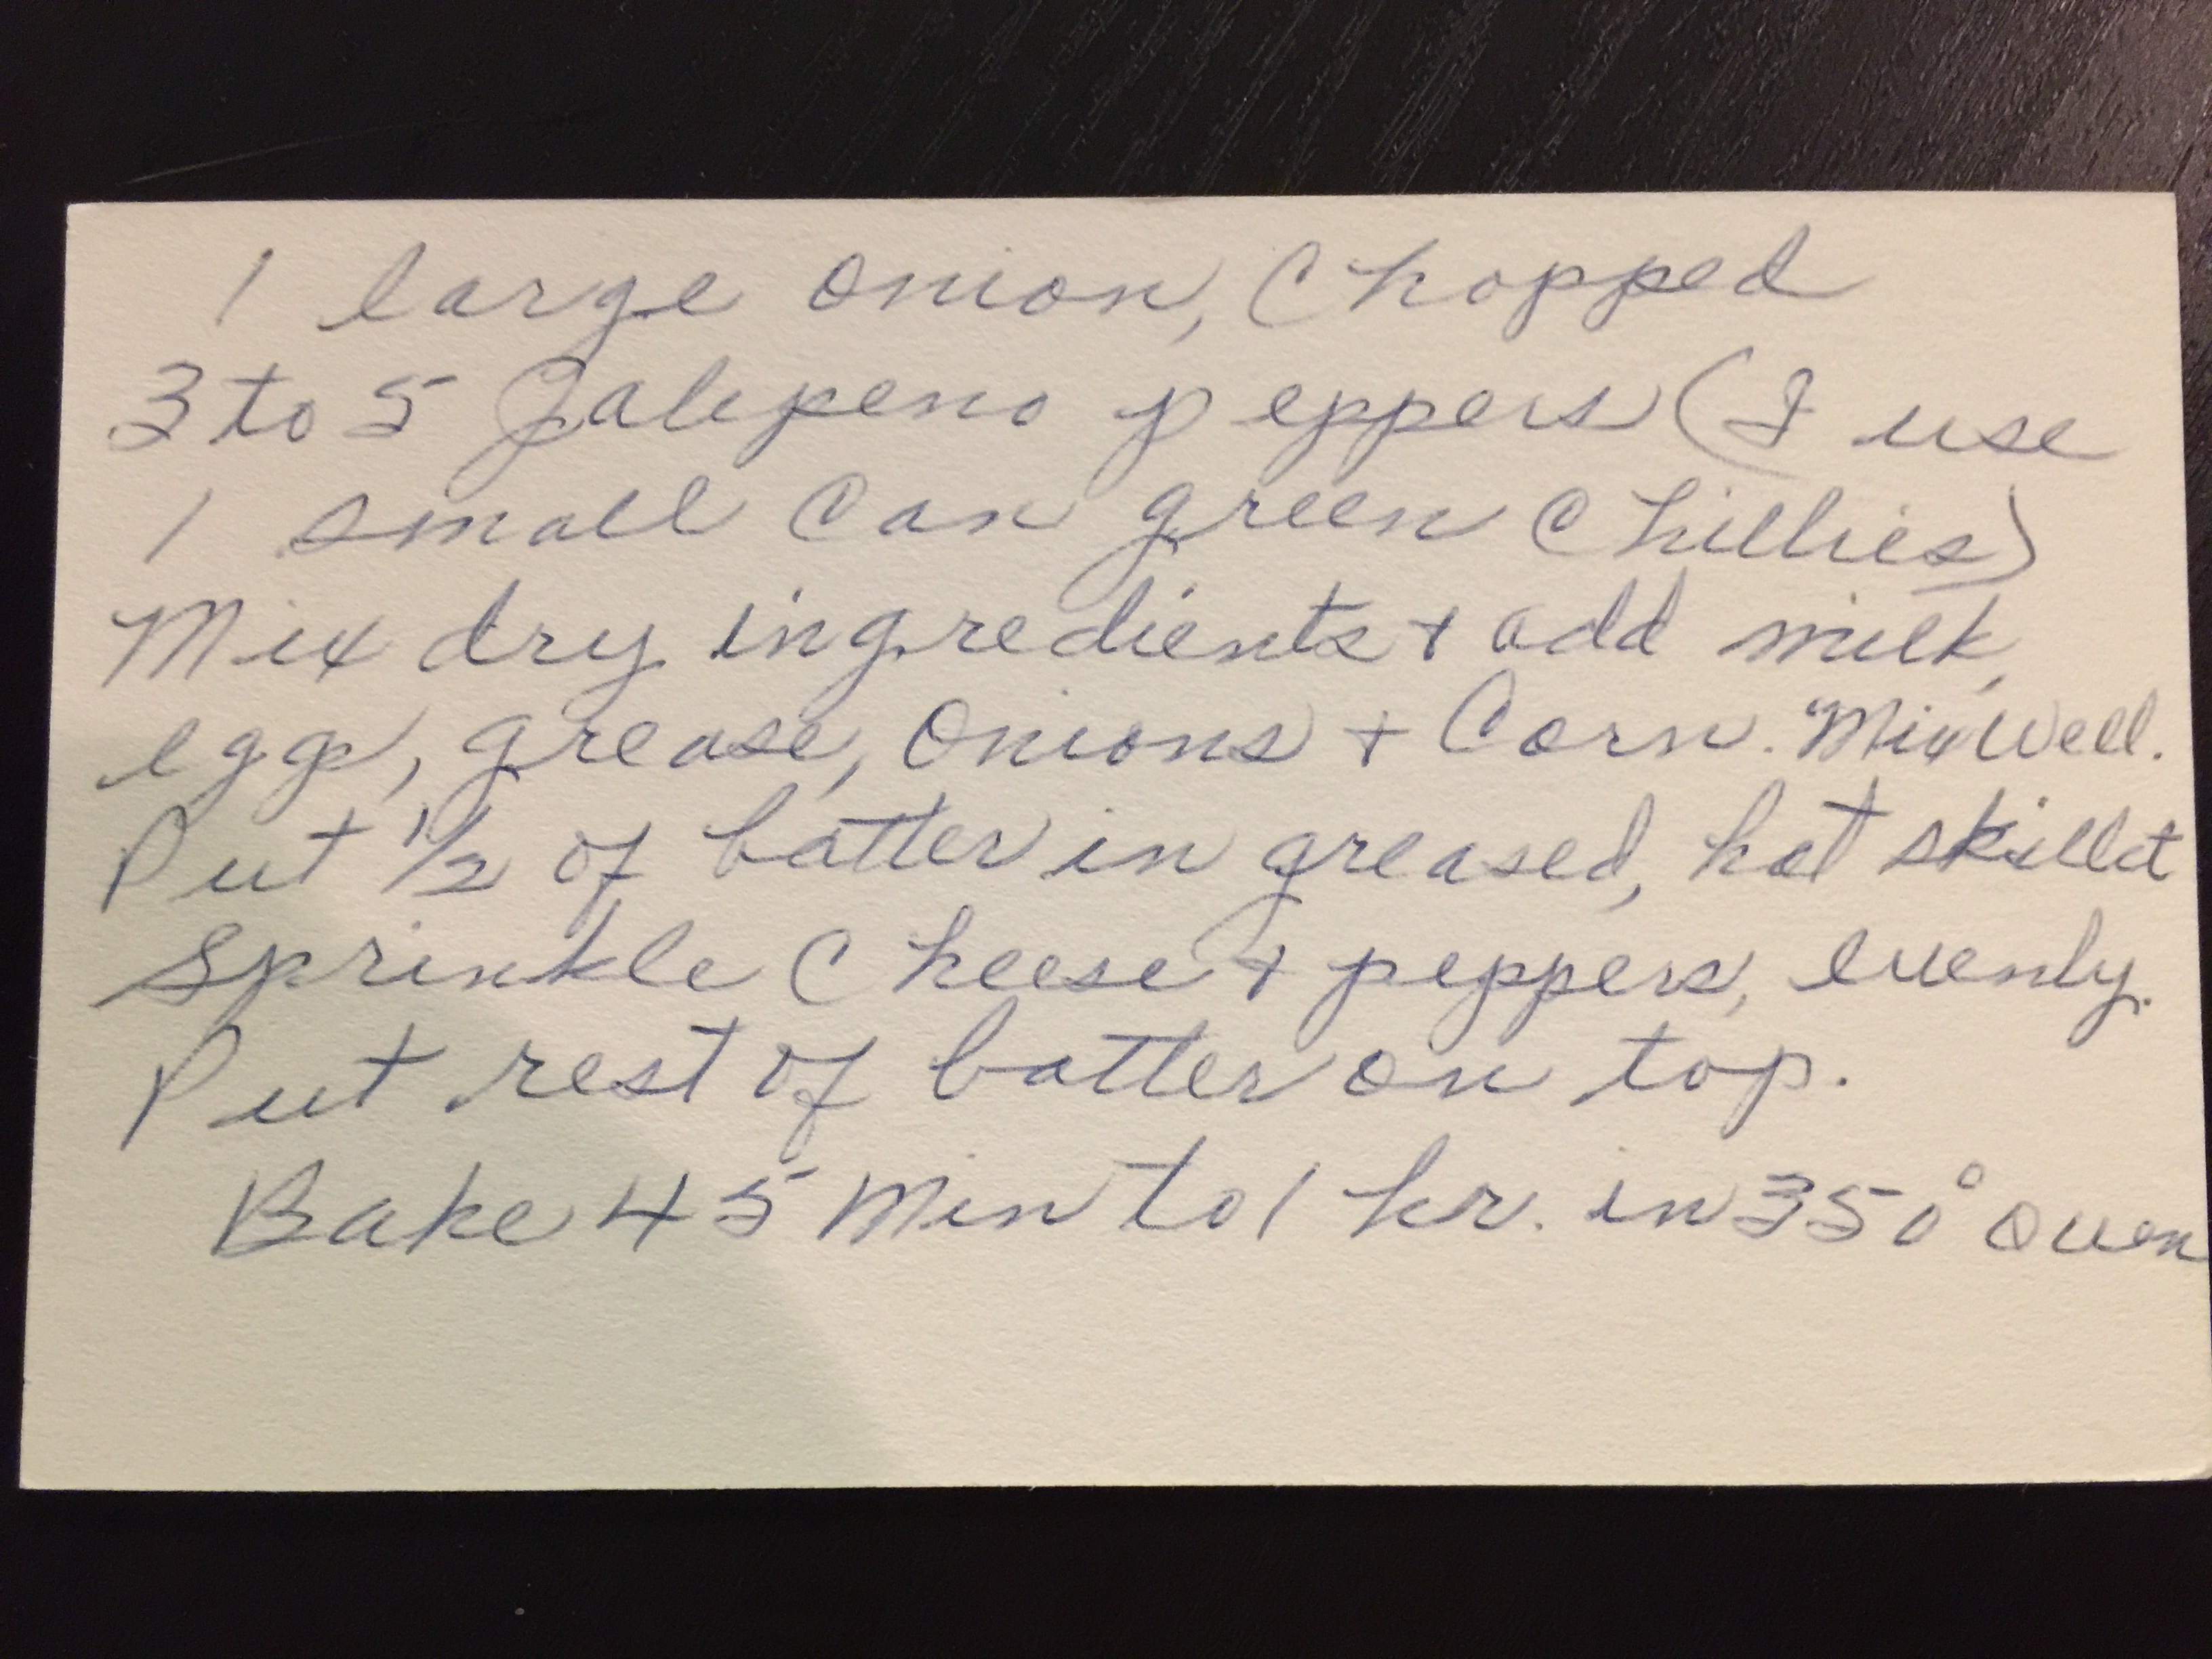 1 large onion, Chopped
3 to 5 Jalepeno peppers (I use
1 small Can green Chillies)
Mix dry ingredients + add milk,
egg, grease, Onions + Corn. Mix Well.
Put 1/2 of batter in greased, hot skillet
Sprinkle Cheese + peppers, evenly.
Put rest of batter on top.
Bake 45 Min to 1 hr. in 350° Oven